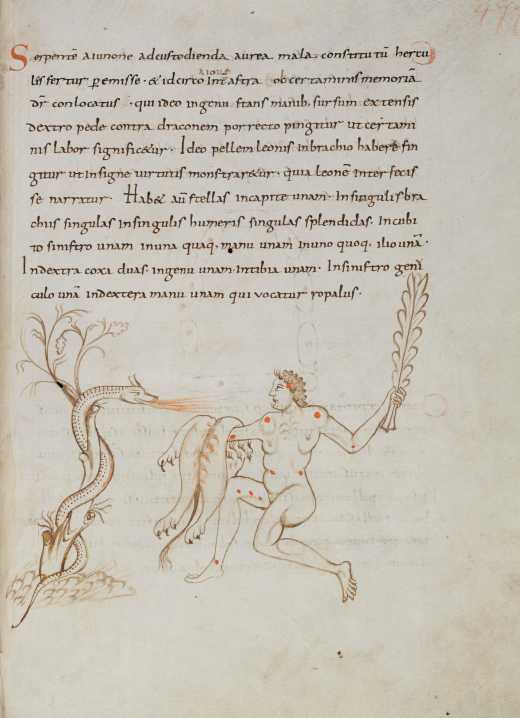 Serpentē aiunone adcustodienda aurea mala constitutū hercu
lis fertur p̄emisse · & idcirco int̄ astra ob certaminis memoriā
a ioue
dr̄ conlocatus · qui ideo ingenu stans manib; sursum extensis
dextro pede contra draconem porrecto pingitur ut certam
inis labor signific&ur · Ideo pellem leonis inbrachio habere fin
gitur ut insigne uirtutis monstrar&ur · quia leonē inter fecis
se narratur · Hab& aūt stellas incapite unam · Insingulis bra
chiis singulas insingulis humeris singulas splendidas · Incubi
to sinistro unam inuna quaq; manu unam inuno quoq; ilio unā ·
Indextra coxa duas · ingenu unam · Intibia unam · Insinistro geni
culo unā indextera manu unam qui vocatur ropalus ·